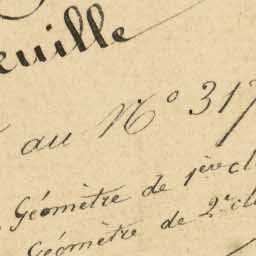 euille
au N° 317
Géomètre de 1ère cl
Géomètre de 2e cl